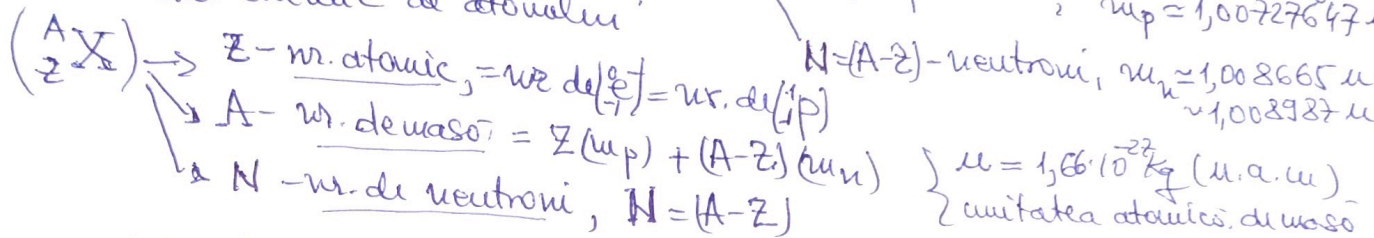 de atomului
m_p = 1,00727647
(^A_Z X) → Z - nr. atomic, = nr de (^0_-1 e) = nr. de (^1_1 p)
N = (A-Z) - neutroni, m_n ≃ 1,008665 u
~ 1,008987 u
A - nr. de masă = Z(m_p) + (A-Z)(m_n)
N - nr. de neutroni, N = (A-Z)
u = 1,66·10^-27 kg (u.a.m)
unitatea atomică de masă